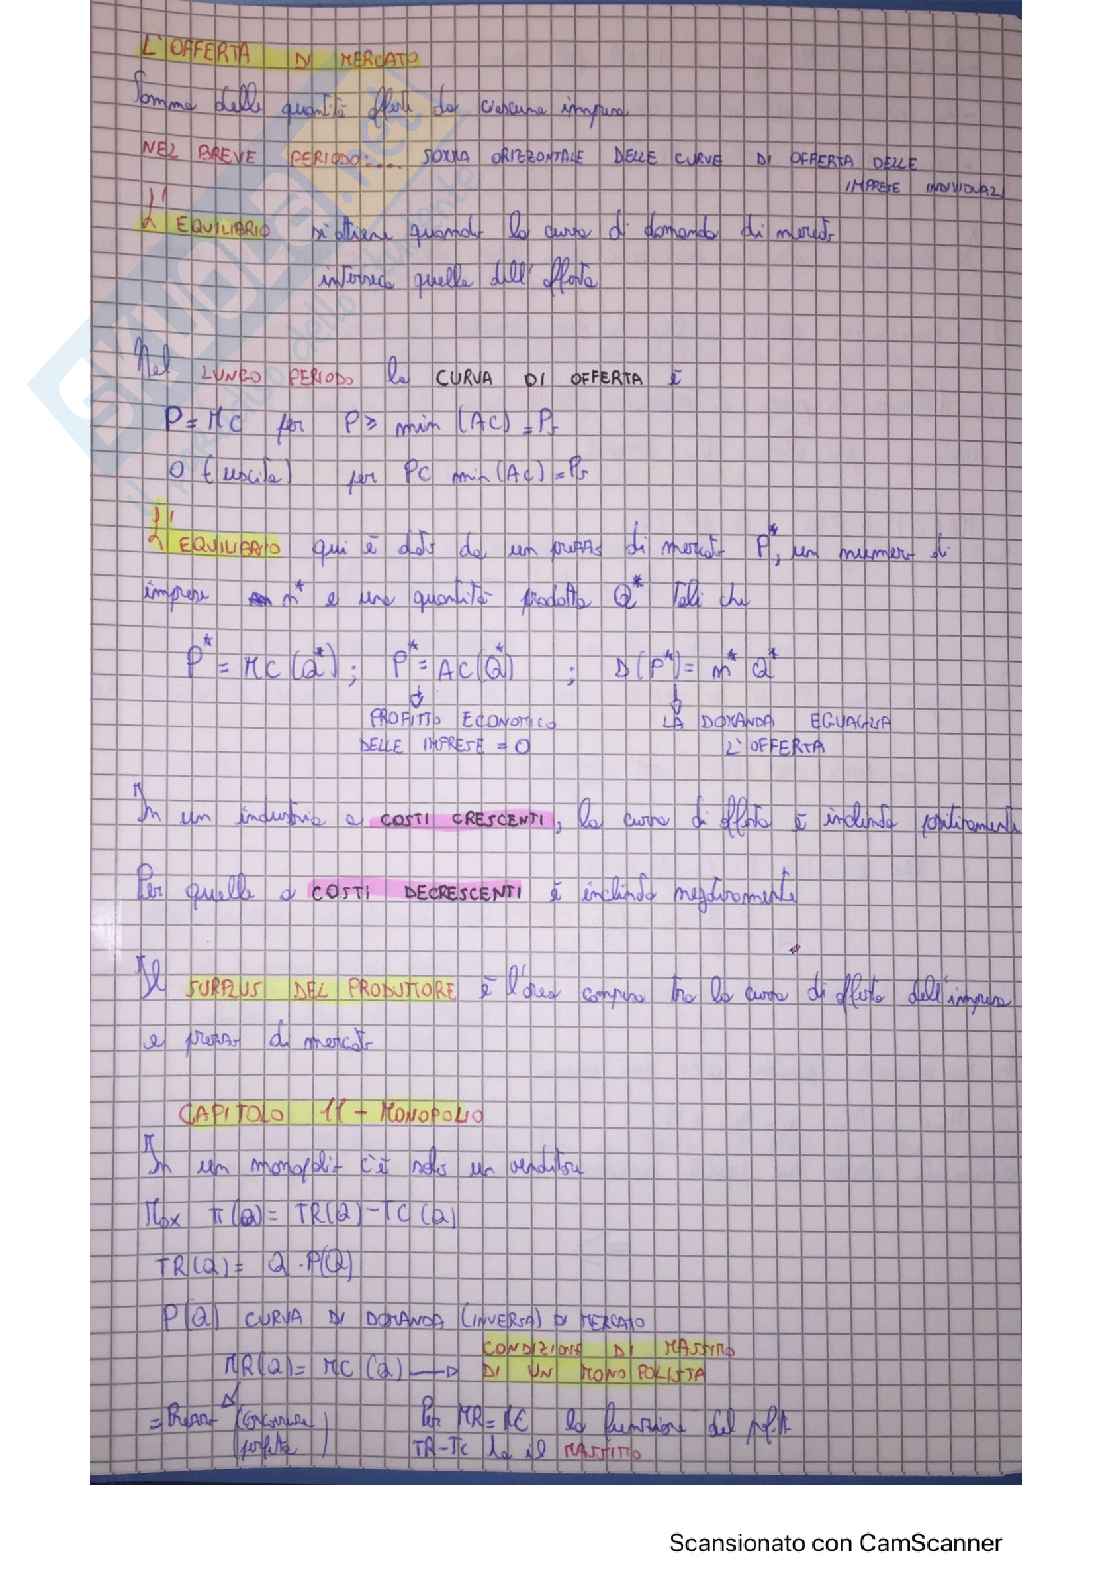 L'OFFERTA DI MERCATO
Somma delle quantità offerte da ciascuna impresa
NEL BREVE PERIODO:... SOMMA ORIZZONTALE DELLE CURVE DI OFFERTA DELLE
IMPRESE INDIVIDUALI
L'EQUILIBRIO si ottiene quando la curva di domanda di mercato
interseca quella dell'offerta
Nel LUNGO PERIODO la CURVA DI OFFERTA È
P = MC per P ≥ min (AC) = Ps
0 (uscita) per P< min (AC) = Ps
L'EQUILIBRIO qui è dato da un prezzo di mercato P*, un numero di
imprese m* e una quantità prodotta Q* tali che
P* = MC (Q*); P* = AC(Q*) ; D(P*) = m* Q*
PROFITTO ECONOMICO LA DOMANDA EGUAGLIA
DELLE IMPRESE = 0 L'OFFERTA
In un industria a COSTI CRESCENTI, la curva di offerta è inclinata positivamente
Per quelle a COSTI DECRESCENTI è inclinata negativamente
Il SURPLUS DEL PRODUTTORE è l'area compresa tra la curva di offerta dell'impresa
e prezzo di mercato
CAPITOLO 11 - MONOPOLIO
In un monopolio c'è solo un venditore
Max π(Q) = TR(Q) - TC(Q)
TR(Q) = Q · P(Q)
P(Q) CURVA DI DOMANDA (INVERSA) DI MERCATO
CONDIZIONE DI MASSIMO
MR(Q) = MC (Q) → DI UN MONOPOLISTA
= Prezzo (concorrenza Per MR = MC la funzione del profitto
perfetta) TR-TC ha il MASSIMO
SKUOLA.net
Scansionato con CamScanner